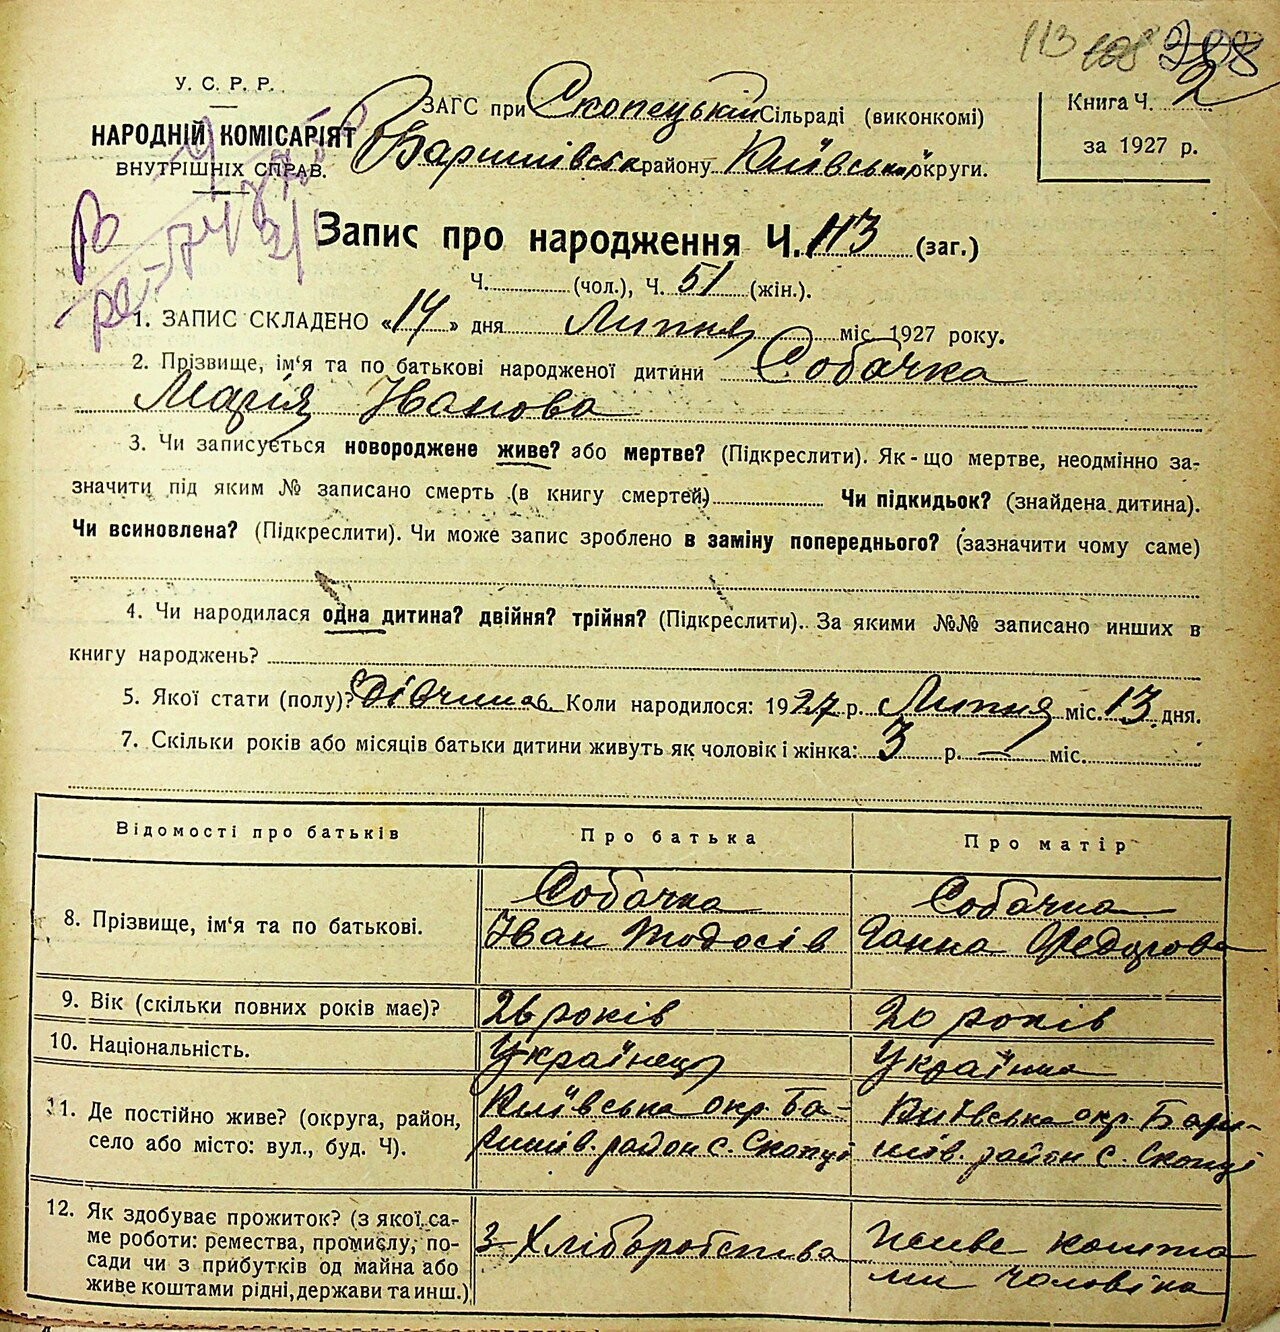 113 108 288
У. С. Р. Р.
НАРОДНІЙ КОМІСАРІЯТ
ВНУТРІШНІХ СПРАВ.
ЗАГС при Скопецькій Сільраді (виконкомі)
Баришівськ району Київськ округи.
Книга Ч. 2
за 1927 р.
Запис про народження Ч. 113 (заг.)
Ч. (чол.), Ч. 51 (жін.).
1. ЗАПИС СКЛАДЕНО «14» дня Липня міс. 1927 року.
2. Прізвище, ім‘я та по батькові народженої дитини Собачка
Марія Іванова
3. Чи записується новороджене живе? або мертве? (Підкреслити). Як-що мертве, неодмінно за-
значити під яким № записано смерть (в книгу смертей) Чи підкидьок? (знайдена дитина).
Чи всиновлена? (Підкреслити). Чи може запис зроблено в заміну попереднього? (зазначити чому саме)
4. Чи народилася одна дитина? двійня? трійня? (Підкреслити). За якими №№ записано инших в
книгу народжень?
5. Якої стати (полу)? дівчина 6. Коли народилося: 1927 р. Липня міс. 13 дня.
7. Скільки років або місяців батьки дитини живуть як чоловік і жінка: 3 р. — міс.
Відомості про батьків Про батька Про матір
8. Прізвище, ім‘я та по батькові.
Собачка
Іван Тодосів
Собачка
Ганна Федорова
9. Вік (скільки повних років має)? 26 років 20 років
10. Національність. Українець Українка
11. Де постійно живе? (округа, район,
село або місто: вул., буд. Ч).
Київська окр. Ба-
ришів. район с. Скопці
Київська окр. Бари-
шів. район с. Скопці
12. Як здобуває прожиток? (з якої са-
ме роботи: ремества, промислу, по-
сади чи з прибутків од майна або
живе коштами рідні, держави та инш.)
з Хліборобства
живе кошта
ми чоловіка